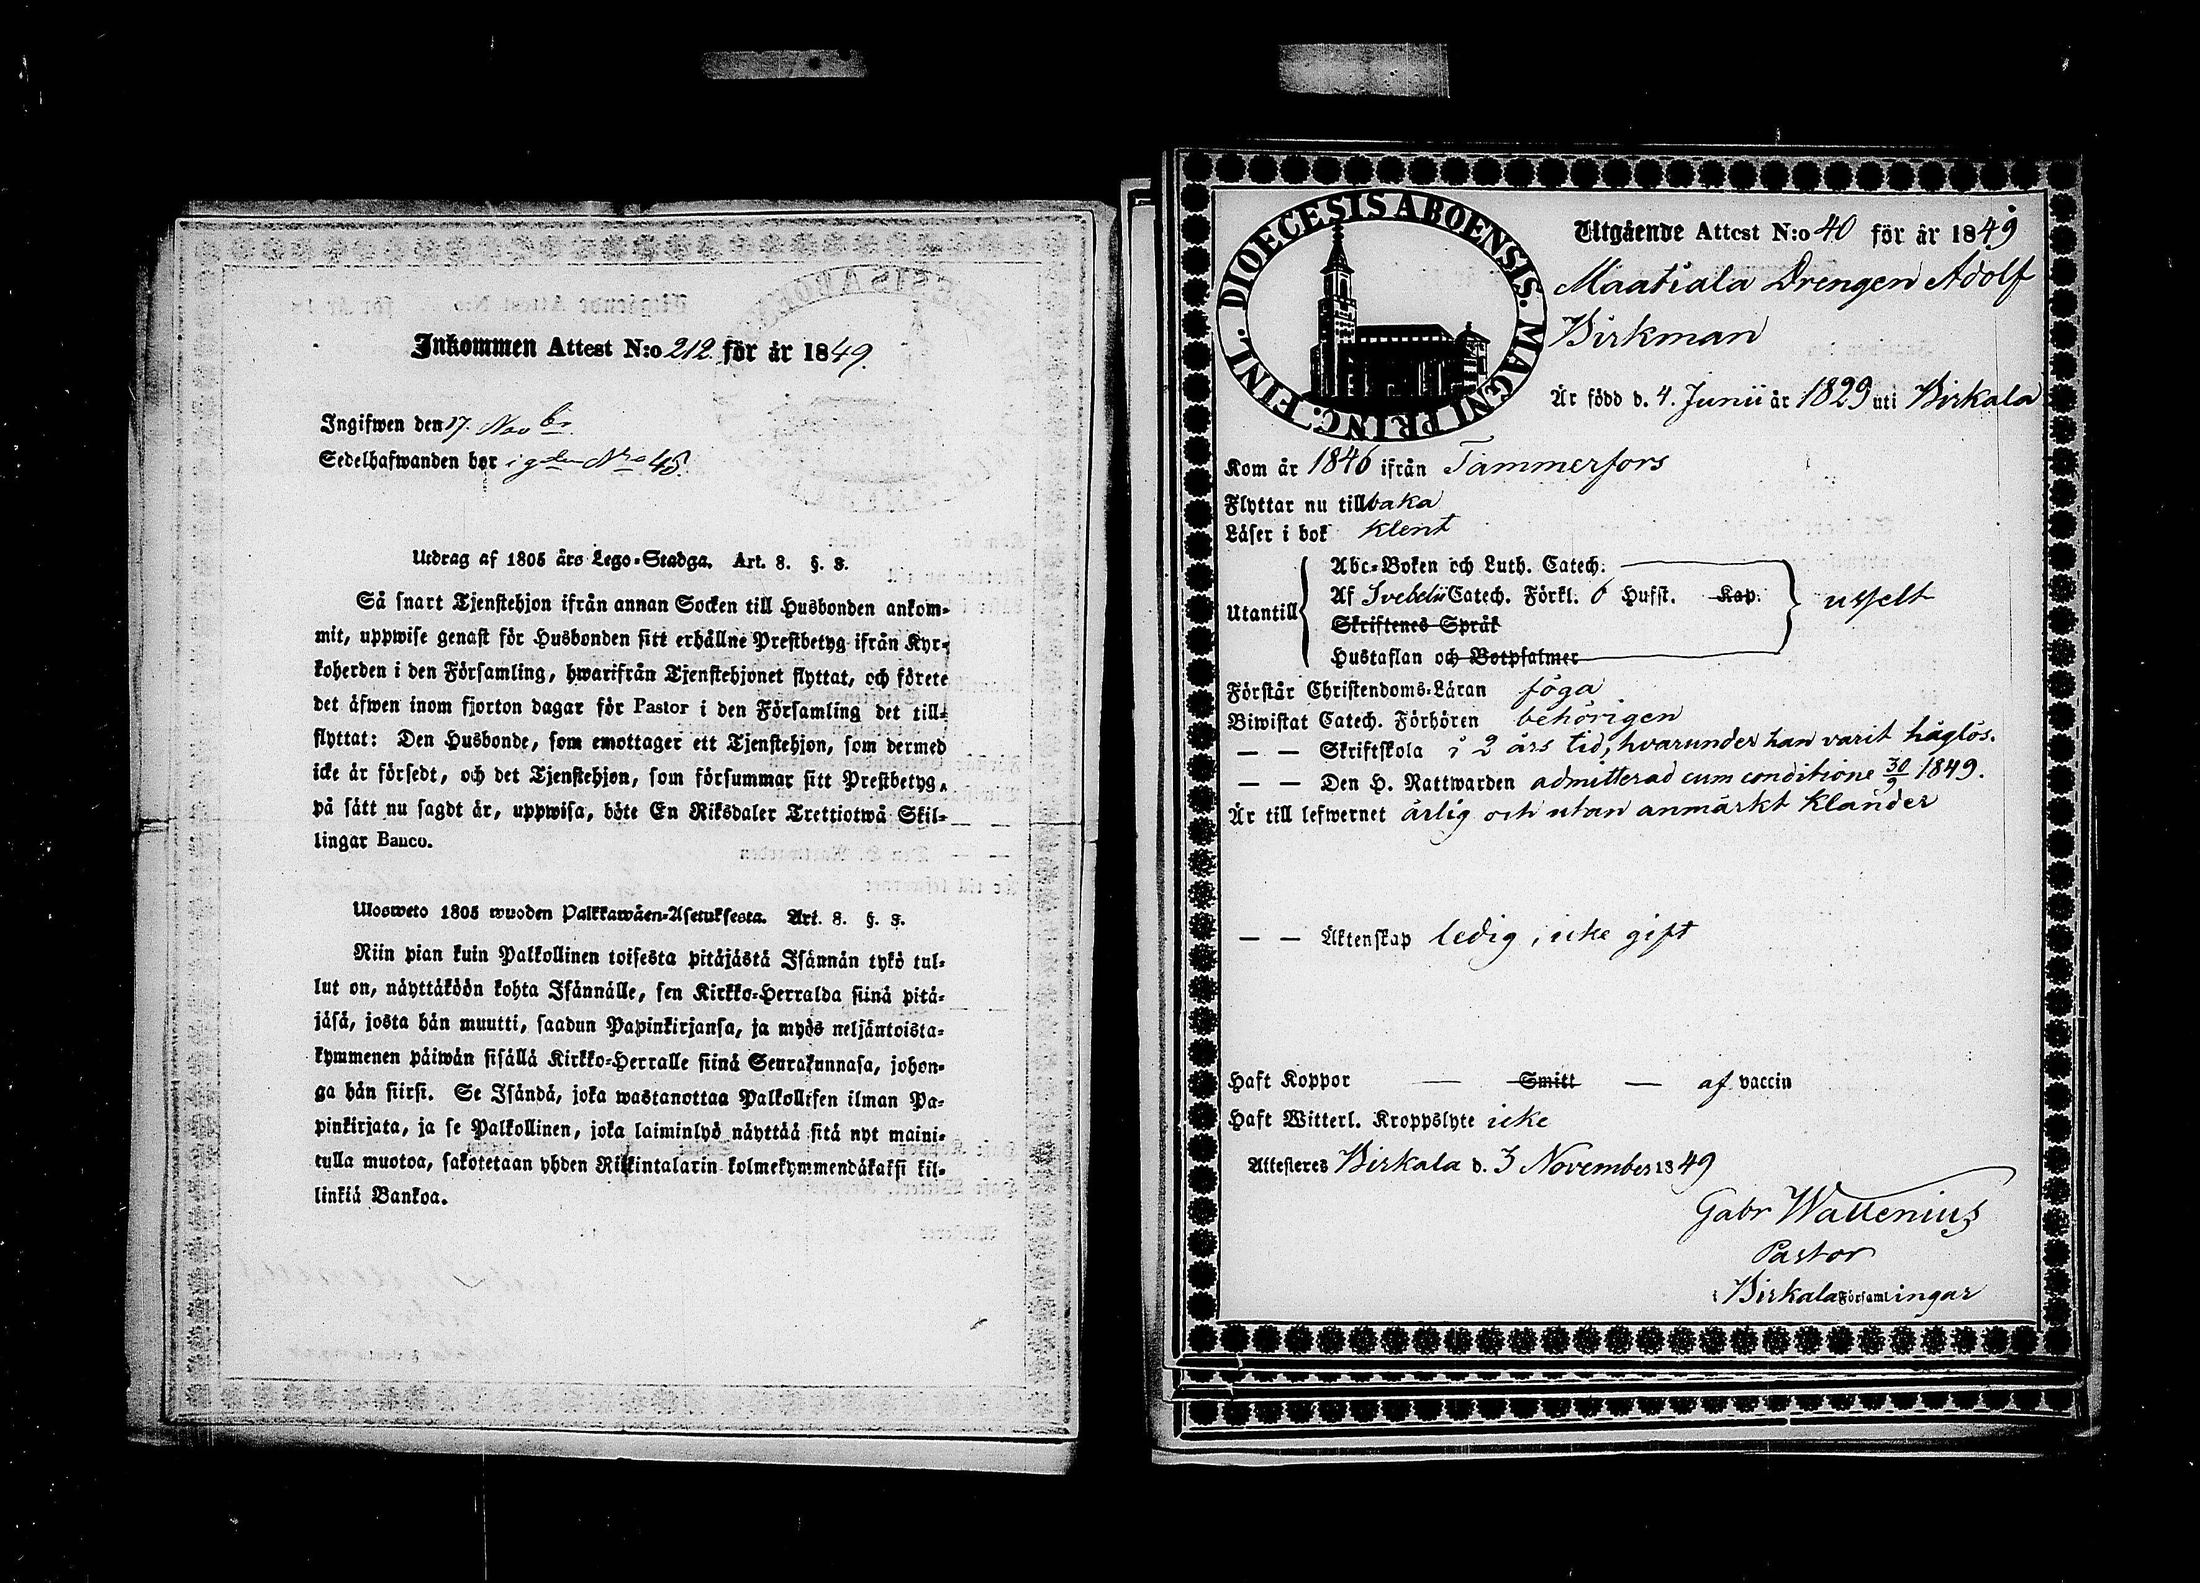 Inkommen Attest N:o 212 för år 1849.
Ingifwen den 17. Novbr
Sedelhafwanden bor i gden Nro 48.
Utdrag af 1805 års Lego-Stadga. Art. 8. §. 8.
Så snart Tjenstehjon ifrån annan Socken till Husbonden ankom-
mit, uppwise genast för Husbonden sitt erhållne Prestbetyg ifrån Kyr-
koherden i den Församling, hwarifrån Tjenstehjonet flyttat, och förete
det äfwen inom fjorton dagar för Pastor i den Församling det till-
flyttat: Den Husbonde, som emottager ett Tjenstehjon, som dermed
icke är försedt, och det Tjenstehjon, som försummar sitt Prestbetyg,
på sätt nu sagdt är, uppwisa, böte En Riksdaler Trettiotwå Skil-
lingar Banco.
Ulosweto 1805 wuoden Palkkawäen-Asetuksesta. Art. 8. §. 8.
Niin pian kuin Palkollinen toisesta pitäjästä Isännän tykö tul-
lut on, näyttäköön kohta Isännälle, sen Kirkko-Herralda siinä pitä-
jäsä, josta hän muutti, saadun Papinkirjansa, ja myös neljäntoista-
kymmenen päiwän sisällä Kirkko-Herralle siinä Seurakunnasa, johon-
ga hän siirsi. Se Isändä, joka wastanottaa Palkollisen ilman Pa-
pinkirjata, ja se Palkollinen, joka laiminlyö näyttää sitä nyt maini-
tulla muotoa, sakotetaan yhden Riikintalarin kolmekymmendäkaksi kil-
linkiä Bankoa.
DIOECESIS ABOENSIS. MAGNI PRINC. FINL.
Utgående Attest N:o 40 för år 1849
Maatiala Drengen Adolf
Birkman
Är född d. 4. Junii år 1829 uti Birkala
Kom år 1846 ifrån Tammerfors
Flyttar nu tillbaka
Läser i bok klent
Abc-Boken och Luth. Catech.
Utantill Af Svebelii Catech. Förkl. 6 Hufst. Kap. usselt
Skriftenes Språk
Hustaflan och Botpsalmer
Förstår Christendoms-Läran föga
Biwistat Catech. Förhören behörigen
— — Skriftskola i 2 års tid, hvarunder han varit håglös.
— — Den H. Nattwarden admitterad cum conditione 30/9 1849.
Är till lefwernet ärlig och utan anmärkt klander
— — Äktenskap ledig, icke gift
Haft Koppor — Smitt — af vaccin
Haft Witterl. Kroppslyte icke
Attesteres Birkala d. 3 November 1849
Gabr Wallenius
Pastor
i Birkala Församlingar